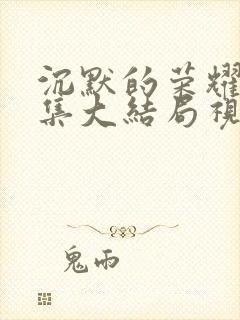 沉默的荣耀
集大结局视
鬼雨